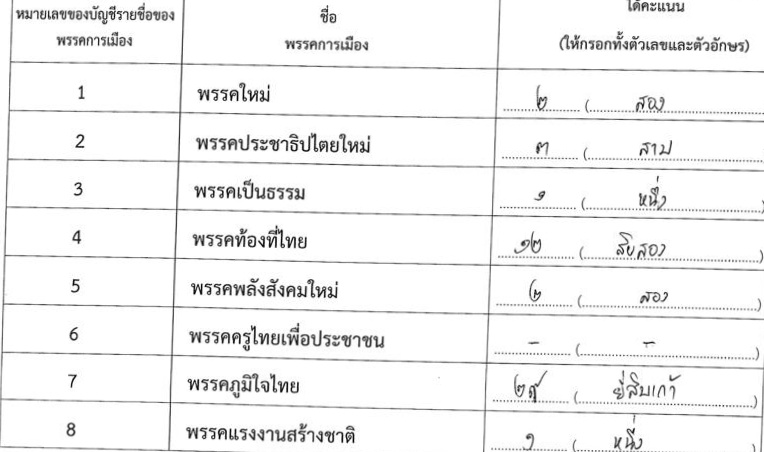 หมายเลขของบัญชีรายชื่อของ
พรรคการเมือง
ชื่อ
พรรคการเมือง
ได้คะแนน
(ให้กรอกทั้งตัวเลขและตัวอักษร)
1 พรรคใหม่ ๒ (สอง)
2 พรรคประชาธิปไตยใหม่ ๓ (สาม)
3 พรรคเป็นธรรม ๑ (หนึ่ง)
4 พรรคท้องที่ไทย ๑๒ (สิบสอง)
5 พรรคพลังสังคมใหม่ ๒ (สอง)
6 พรรคครูไทยเพื่อประชาชน - (-)
7 พรรคภูมิใจไทย ๒๙ (ยี่สิบเก้า)
8 พรรคแรงงานสร้างชาติ ๑ (หนึ่ง)